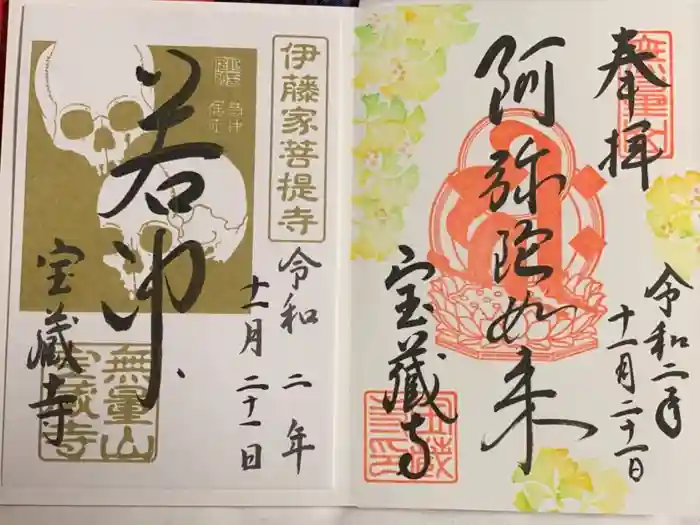 奉拝
無量山
阿弥陀如来
令和二年
十一月二十一日
宝蔵寺
伊藤家菩提寺
若冲
令和二年
十一月二十一日
宝蔵寺
無量山
宝蔵寺